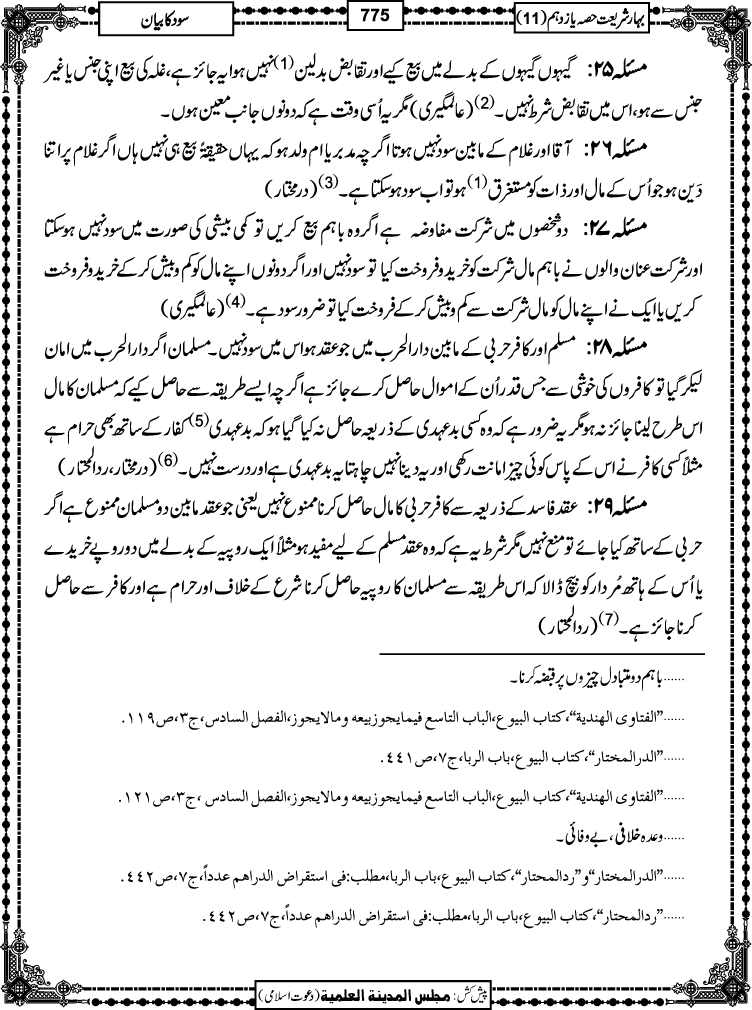 بہارشریعت حصہ یازدہم (11)
775
سود کا بیان
مسئلہ ۲۵: گیہوں گیہوں کے بدلے میں بیع کیے اور تقابض بدلین(1) نہیں ہوا یہ جائز ہے، غلہ کی بیع اپنی جنس یا غیر
جنس سے ہو، اس میں تقابض شرط نہیں۔(2) (عالمگیری) مگر یہ اُسی وقت ہے کہ دونوں جانب معین ہوں۔
مسئلہ ۲۶: آقا اور غلام کے مابین سود نہیں ہوتا اگرچہ مدبر یا ام ولد ہو کہ یہاں حقیقۃً بیع ہی نہیں ہاں اگر غلام پر اتنا
دَین ہو جو اُس کے مال اور ذات کو مستغرق(1) ہو تو اب سود ہو سکتا ہے۔(3) (درمختار)
مسئلہ ۲۷: دو شخصوں میں شرکت مفاوضہ ہے اگر وہ باہم بیع کریں تو کمی بیشی کی صورت میں سود نہیں ہو سکتا
اور شرکت عنان والوں نے باہم مال شرکت کو خرید و فروخت کیا تو سود نہیں اور اگر دونوں اپنے مال کو کم و بیش کر کے خرید و فروخت
کریں یا ایک نے اپنے مال کو مال شرکت سے کم و بیش کر کے فروخت کیا تو ضرور سود ہے۔(4) (عالمگیری)
مسئلہ ۲۸: مسلم اور کافر حربی کے مابین دارالحرب میں جو عقد ہو اس میں سود نہیں۔ مسلمان اگر دارالحرب میں امان
لیکر گیا تو کافروں کی خوشی سے جس قدر اُن کے اموال حاصل کرے جائز ہے اگرچہ ایسے طریقہ سے حاصل کیے کہ مسلمان کا مال
اس طرح لینا جائز نہ ہو مگر یہ ضرور ہے کہ وہ کسی بدعہدی کے ذریعہ حاصل نہ کیا گیا ہو کہ بدعہدی(5) کفار کے ساتھ بھی حرام ہے
مثلاً کسی کافر نے اس کے پاس کوئی چیز امانت رکھی اور یہ دینا نہیں چاہتا یہ بدعہدی ہے اور درست نہیں۔(6) (درمختار، ردالمحتار)
مسئلہ ۲۹: عقد فاسد کے ذریعہ سے کافر حربی کا مال حاصل کرنا ممنوع نہیں یعنی جو عقد مابین دو مسلمان ممنوع ہے اگر
حربی کے ساتھ کیا جائے تو منع نہیں مگر شرط یہ ہے کہ وہ عقد مسلم کے لیے مفید ہو مثلاً ایک روپیہ کے بدلے میں دو روپے خریدے
یا اُس کے ہاتھ مُردار کو بیچ ڈالا کہ اس طریقہ سے مسلمان کا روپیہ حاصل کرنا شرع کے خلاف اور حرام ہے اور کافر سے حاصل
کرنا جائز ہے۔(7) (ردالمحتار)
......باہم دو متبادل چیزوں پر قبضہ کرنا۔
......”الفتاوی الهندیة“، کتاب البیوع، الباب التاسع فیمایجوزبیعه ومالایجوز، الفصل السادس، ج۳، ص۱۱۹.
......”الدرالمختار“، کتاب البیوع، باب الربا، ج۷، ص۴۴۱.
......”الفتاوی الهندیة“، کتاب البیوع، الباب التاسع فیمایجوزبیعه ومالایجوز، الفصل السادس ، ج۳، ص۱۲۱.
......وعدہ خلافی، بے وفائی۔
......”الدرالمختار“و”ردالمحتار“، کتاب البیوع، باب الربا، مطلب:فی استقراض الدراهم عدداً، ج۷، ص۴۴۲.
......”ردالمحتار“، کتاب البیوع، باب الربا، مطلب:فی استقراض الدراهم عدداً، ج۷، ص۴۴۲.
پیش کش: مجلس المدینة العلمیة (دعوت اسلامی)